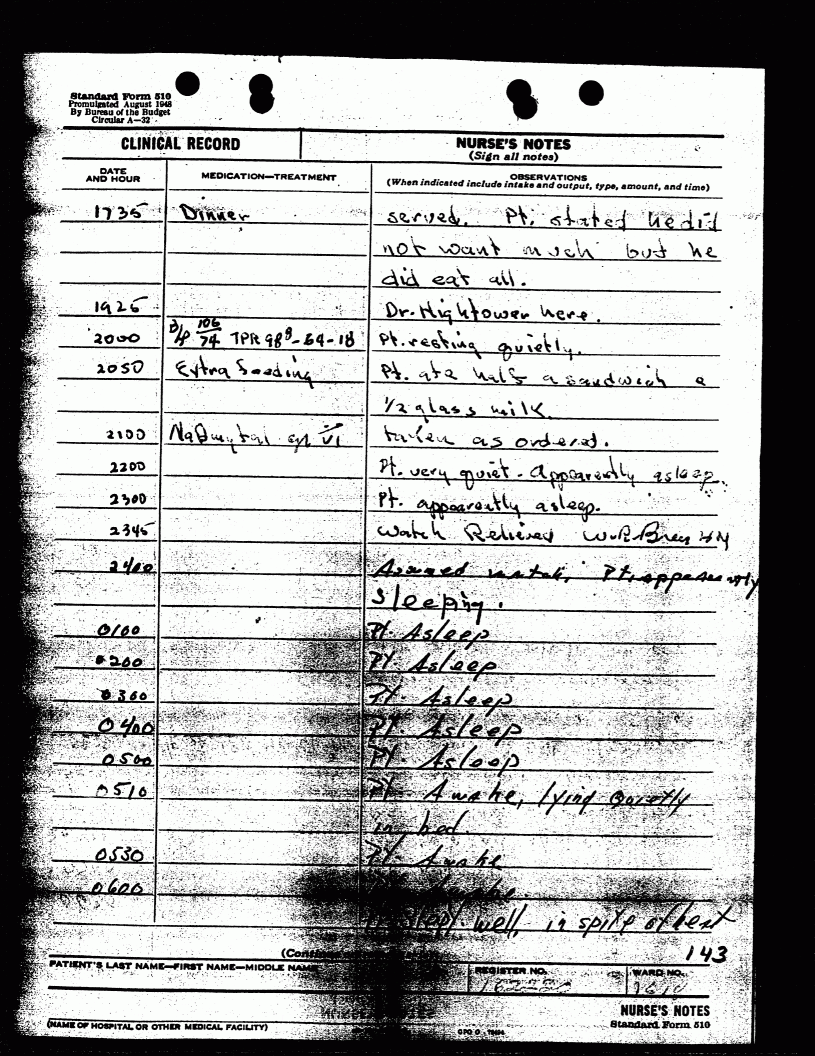 Standard Form 510
Promulgated August 1948
By Bureau of the Budget
Circular A—32
CLINICAL RECORD
NURSE'S NOTES
(Sign all notes)
DATE
AND HOUR
MEDICATION—TREATMENT
OBSERVATIONS
(When indicated include intake and output, type, amount, and time)
1735 Dinner served. Pt. stated he did
not want much but he
did eat all.
1925 Dr. Hightower here.
2000 B/P 106/74 TPR 98⁸-64-18 Pt. resting quietly.
2050 Extra feeding Pt. ate half a sandwich &
1/2 glass milk.
2100 Na Amytal gr VI taken as ordered.
2200 Pt. very quiet - Appearently asleep.
2300 Pt. appearently asleep.
2345 Watch Relieved
2400 Assumed watch, Pt. appearently
sleeping.
0100 Pt. Asleep
0200 Pt. Asleep
0300 Pt. Asleep
0400 Pt. Asleep
0500 Pt. Asleep
0510 Pt. Awake, lying quietly
in bed.
0530 Pt. Awake
0600 Pt. Awake.
well, in spite of
143
PATIENT'S LAST NAME—FIRST NAME—MIDDLE NAME
REGISTER NO.
WARD NO.
NURSE'S NOTES
Standard Form 510
(NAME OF HOSPITAL OR OTHER MEDICAL FACILITY)